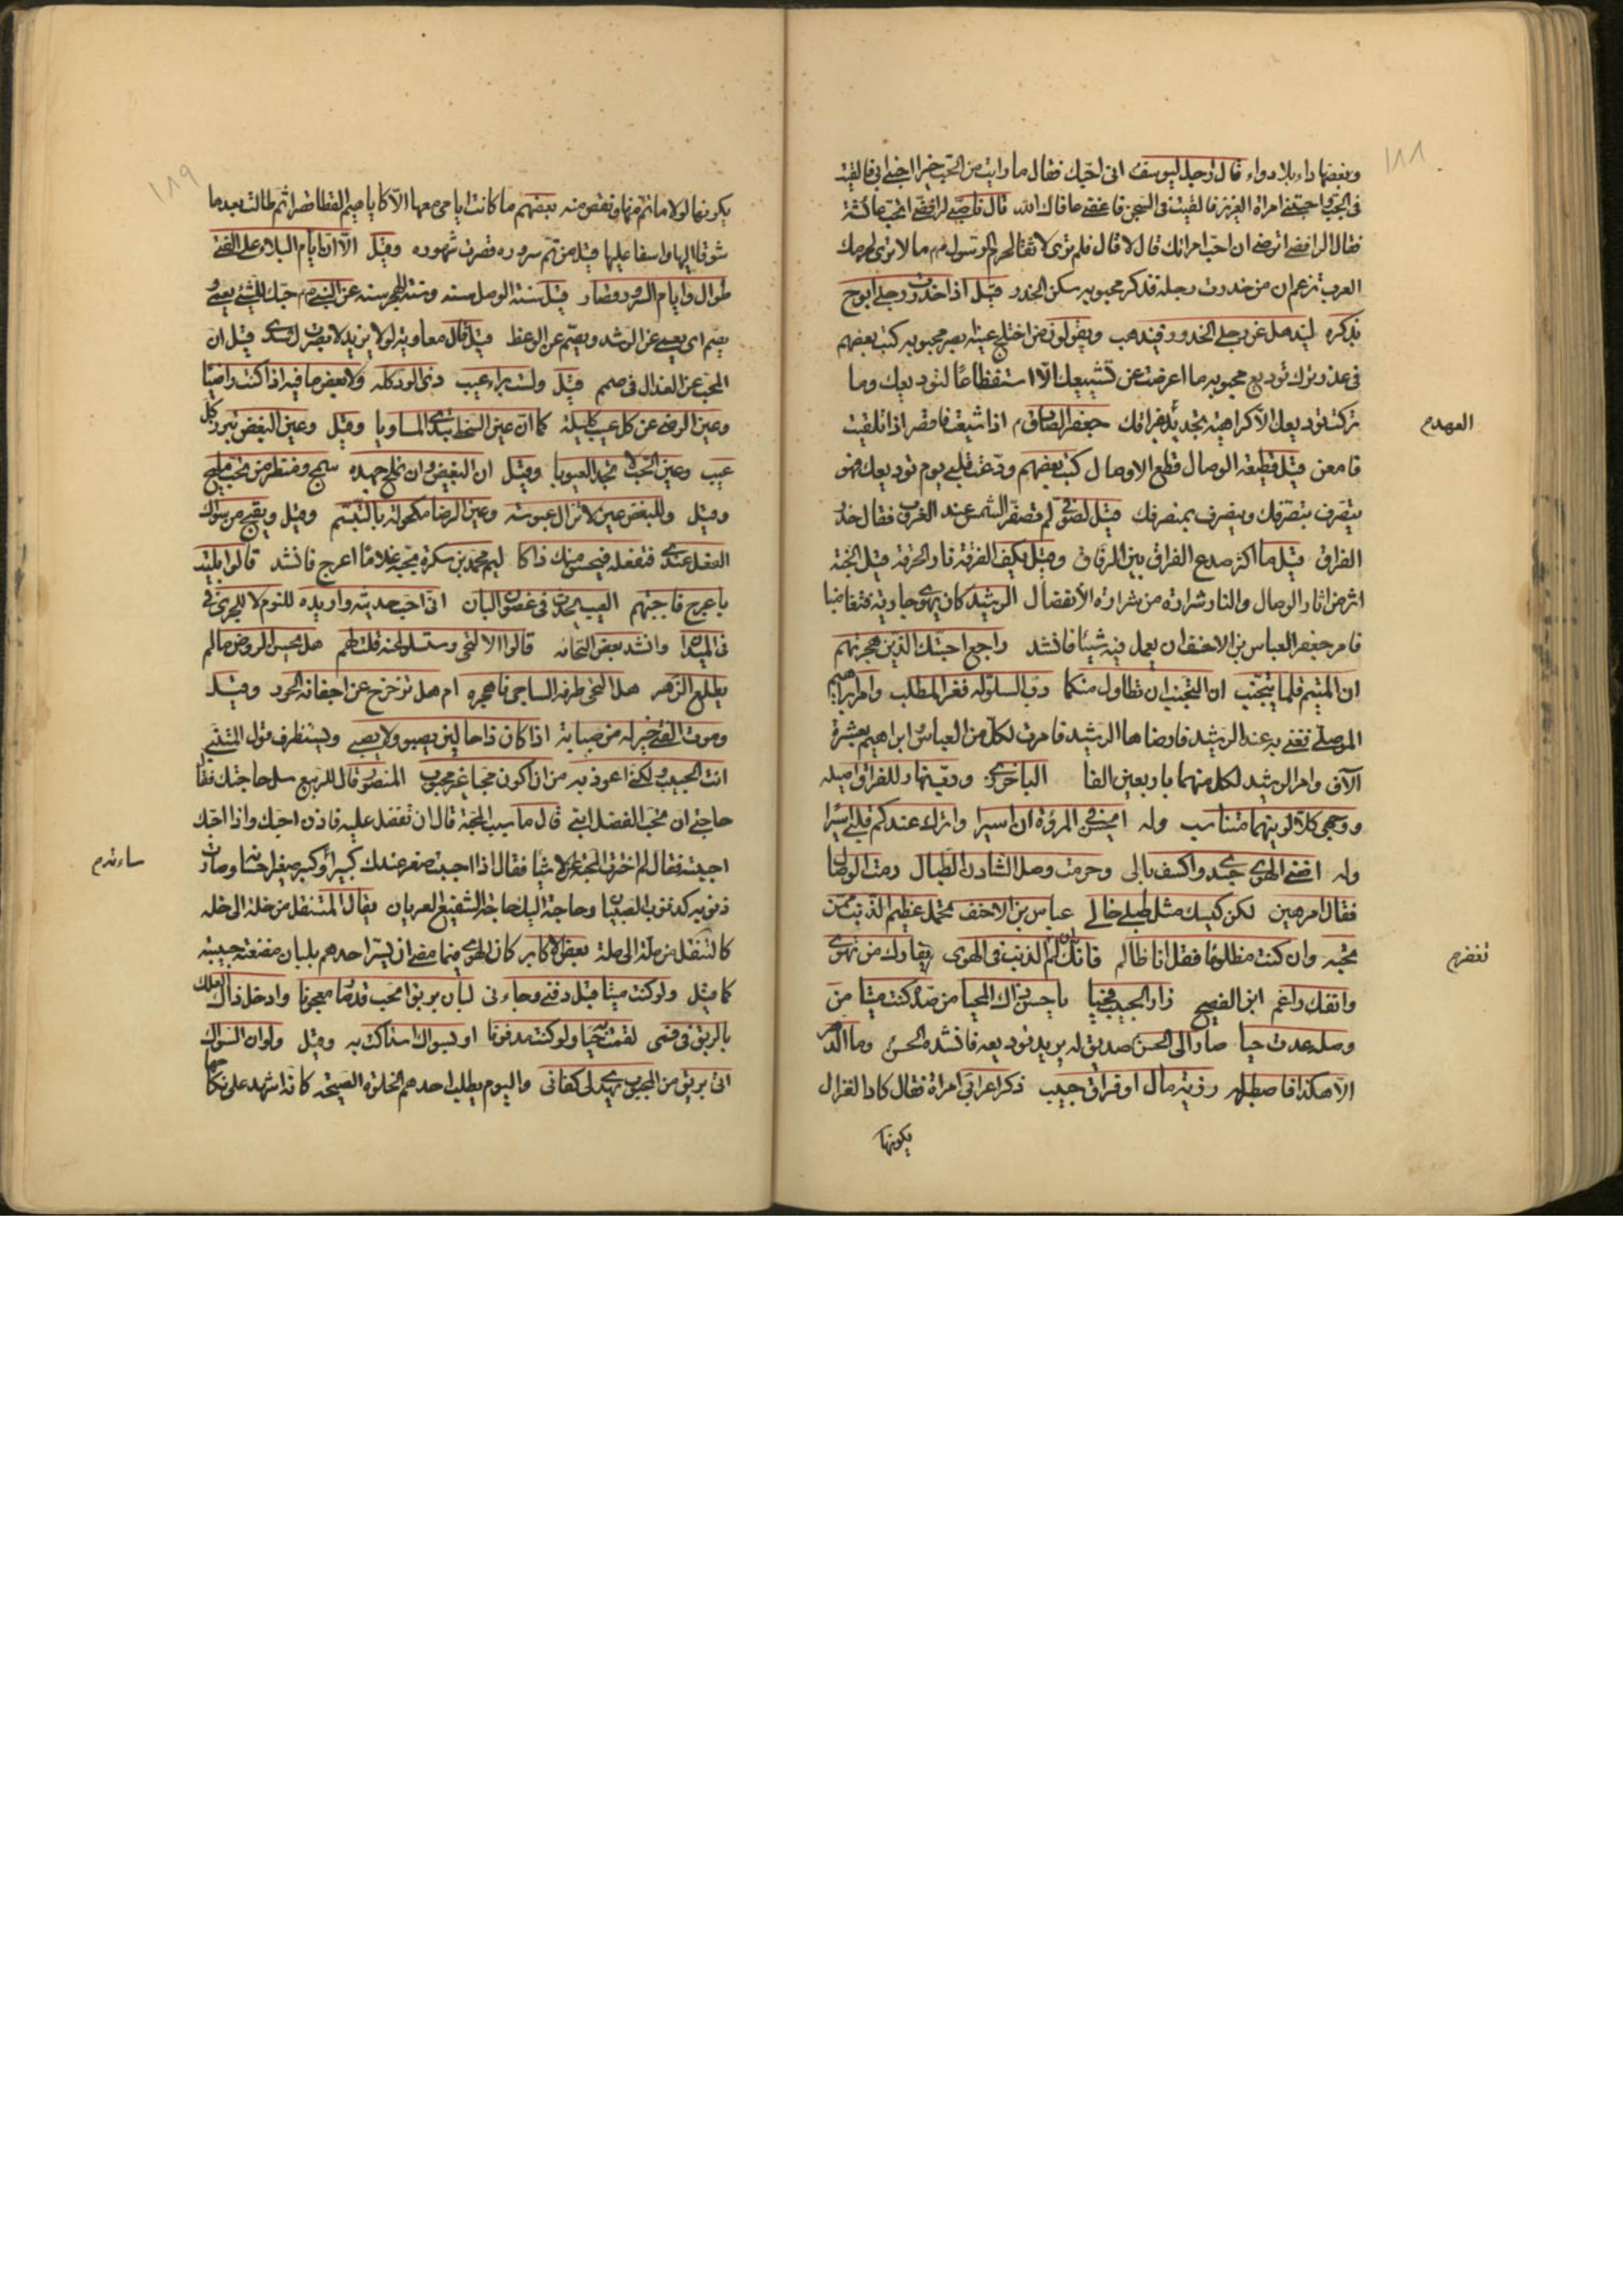 ١٨٨
وبعضها داء بلا دواء قال رجل ليوسف انى احبّك فقال ما رايت من الحب خيرا احبنى ابى فالقيت
فى الجب واحبتنى امراة العزيز فالقيت فى السجن فاعفنى عافاك الله قال ناصبى لرافضى اتحب عائشة
فقال الرافضى اترضى ان احب امراتك قال لا قال فلم ترى لاثقالحرم الرسول م ما لا ترى لحرمك
العرب تزعم ان من خدرت رجله فذكر محبوبه سكن الخدر قيل اذا خدرت رجلى ابوح
بذكره ليذهل عن رجلى الخدور فيذهب ويقولون من اختلج عينه يبصر محبوبه كتب بعضهم
فى عذر ترك توديع محبوبه ما اعرضت عن تشييعك الّا استفظاعًا لتوديعك وما
تركت توديعك الا كراهية تجديد لفراقك جعفر الصادق م اذا شيعت فاقصر اذا تلقيت
العهدم
فامعن قيل قطيعة الوصال قطع الاوصال كتب بعضهم ودّعت قلبى يوم توديعك فهو
يتصرف بتصرفك وينصرف بمنصرفك قيل لصوفى لم تصفر الشمس عند الغروب فقال حذر
الفراق قيل ما اكثر صدع الفراق بين الرفاق وقيل يكيف الفرقة نار الحرقة قيل الجنة
اثر من اثار الوصال والنار شرارة من شرارة الانفصال الرشيد كان يهوى جارية فتغاضبا
فامر جعفر العباس بن الاحنف ان يعمل فيه شيئا فانشد راجع احبتك الذين هجرتهم
ان المتيم قلما يتجنب ان التجنب ان تطاول منكما دب السلو له فعز المطلب وامر ابراهيم
الموصلى تغنى به عند الرشيد فارضاها الرشيد فامرت لكل من العباس وابراهيم بعشرة
الآف وامر الرشيد لكل منهما باربعين الفا الباخرزى وودعتها وللفراق اميله
ووجهى كلا لونيهما متناسب وله ايحسن فى المروة ان اسيرا واترك عندكم قلبى اسيرا
وله افنى الهوى جسد واكسف بالى وحرمت وصل الشادن الطبال رمت الوصال
فقال مرهمين لكن كيسك مثل طبلى خالى عباس بن الاحنف تحمل عظيم الذنب ممن
تحبه وان كنت مظلومًا فقل انا ظالم فانك ان لم الذنب فى الهوى يفارك من تهوى
تغفرم
وانفك راغم ابن الفصيح زار الحبيب فحيا يا حسن ذاك المحيا من صده كنت ميتا من
وصله عدت حيا صار الى الحسن صديق له يريد توديعه فانشده الحسن وما الدهر
الّا هكذا فاصطبر له رزية مال او فراق حبيب ذكر اعرابى امراة فقال كاد الغزال
يكونها
١٨٩
يكونها لولا ما تم منها ونقص منه بعضهم ما كانت ايامى معها الا كاباهيم القطا قصرا ثم طالت بعدها
شوقا اليها واسفا عليها قيل من تم سروره قصرت شهوره وقيل الا ان ايام البلاء على الفتى
طوال وايام السرور قصار قيل سنة الوصل سنه وسنة الهجر سنه عن النبى م حبّك للشئ يعمى و
يصم اى يعمى عن الرشد ويصم عن الوعظ قيل قال معاوية لولا يزيد لابصرت رشدى قيل ان
المحب عن العذال فى صمم قيل ولست براء عيب ذى الود كله ولا بعض ما فيه اذا كنت راضيا
وعين الرضى عن كل عيب كليلة كما ان عين السخط تبدى المساويا وقيل وعين البغض تبرز كل
عيب وعين الحب لا تجد العيوبا وقيل ان البغيض وان تملح جهده سمج ومنظر من تحب مليح
وقيل وللبغض عين لا تزال عبوسة وعين الرضا مكحولة بالتبسم وقيل ويقبح من سواك
الفعل عندى فتفعله فيحسن منك ذاكا ليم محمد بن سكرة بمحبة غلاما اعرج فانشد قالوا بليت
باعرج فاجبتهم العيب يحدث فى غصون البان انى احب حديثه واريده للنوم لا للجرى فى
فى الميدا وانشد بعض النحاة قالوا الا لتحى وستسلو عنه قلت لهم هل يحسن الروض ما لم
يطلع الزهر هل التحى طرفه الساجى فاهجره ام هل تزحزح عن اجفانه الحور وقيل
وموت الفتى خير له من صبابة اذا كان ذا حالين يصبو ولا يصبى ويستظرف قول المتنبى
انت الحبيب ولكنى اعوذ به من ان اكون محبا غير محبوب المنصور قال للربيع سل حاجتك فقال
حاجتى ان تحب الفضل ابنى قال ما سبب المحبة قال ان تفضل عليه فاذن احبك واذا احبك
احببته فقال لم اخترت المحبة على الاشيا فقال اذا احببت صغر عندك كبير وكبر صغير احسانه وصارت
ساءته‌م
ذنوبه كذنوب الصبيان وحاجة اليك حاجة الشفيع العريان يقال المتنقل من خلة الى خله
كالمتنقل من ملة الى ملة بعض الاكابر كان الهوى فيما مضى ان يسر احدهم بلبان مضغته حبيبه
كما قيل ولو كنت ميتا قبل دفنى وجاءنى لبان بريق المحب قدمًا معجونا وادخل ذاك العلك
بالريق فى فمى لقمت حيا ولو كنت مدفونا او بسواك استاكت به وقيل ولو ان السواك
اتى بريق من المحبوب يهدى لى كفانى واليوم يطلب احدهم الخلوة الصحيحة كانه اشهد على نكاحها